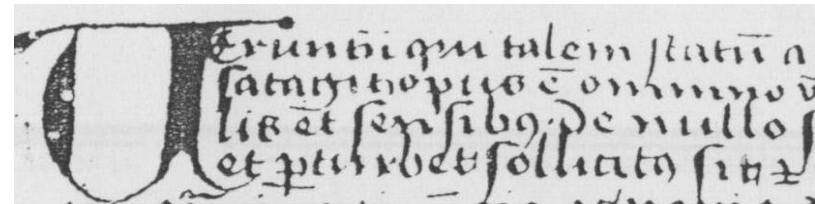 Veruntñ qui talem statū a
satagit opus ē omnino v
lis et sensibꝰ. De nullo s
et ꝑturbet sollicitꝰ sit ꝛ